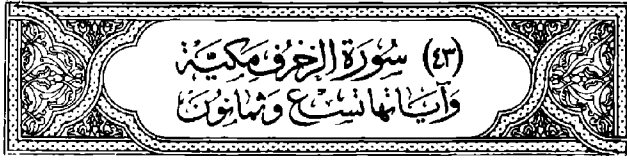 (٤٣) سُورَةُ الزّخْرُفِ مَكِيَّة
وَآيَاتُهَا تِسْعٌ وَثَمَانُونَ